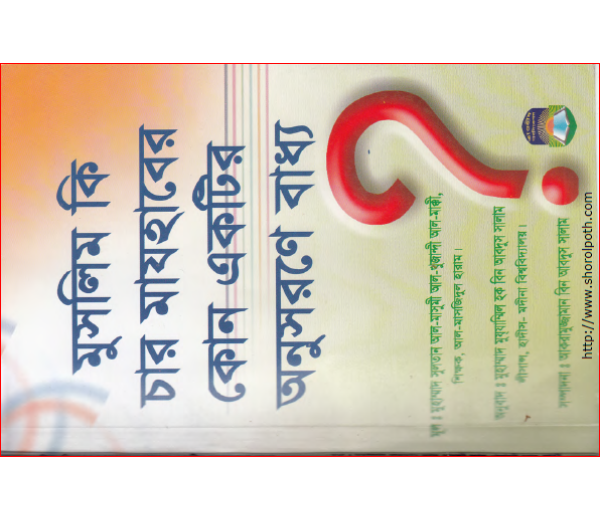 মুসলিম কি
চার মাযহাবের
কোন একটির
অনুসরণে বাধ্য
?
মূল ঃ মুহাম্মাদ সুলতান আল-মাসূমী আল-খুজান্দী আল-মাক্কী,
শিক্ষক, আল-মাসজিদুল হারাম।
অনুবাদ ঃ মুহাম্মদ মুযাম্মিল হক বিন আবদুস সালাম
লীসান্স, হাদীস- মদীনা বিশ্ববিদ্যালয়।
সম্পাদনা ঃ আকরামুজ্জামান বিন আবদুস সালাম
http://www.shorolpoth.com